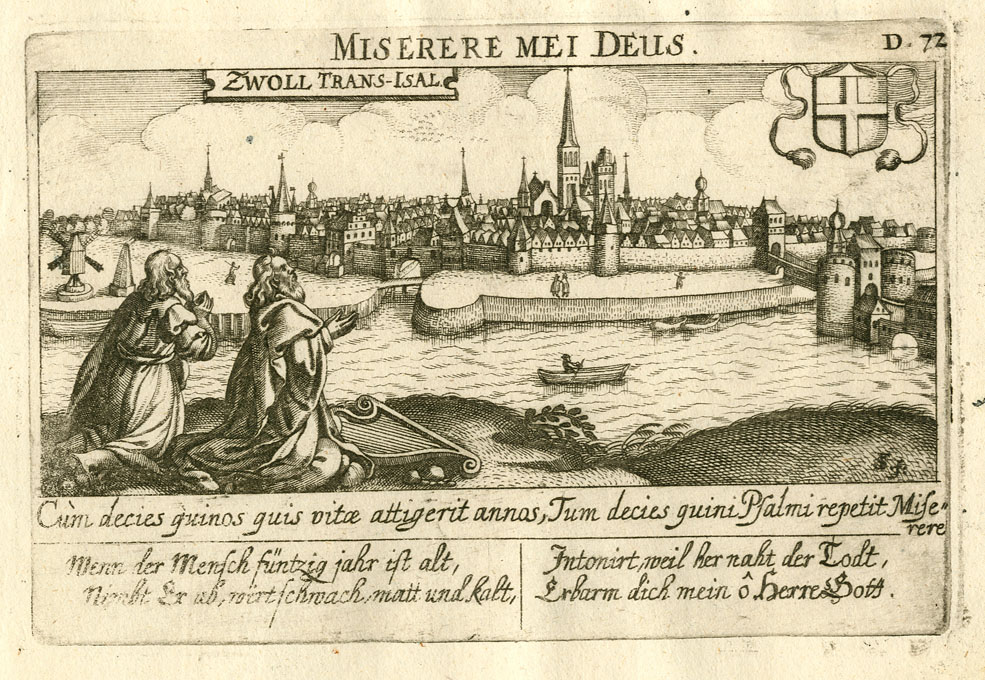 MISERERE MEI DEUS.
D. 72
ZWOLL TRANS-ISAL.
Cùm decies quinos quis vitæ attigerit annos, Tum decies quini Psalmi repetit Mise=
rere
Wenn der Mensch füntzig jahr ist alt,
Nimbt Er ab, wirt schwach, matt und kalt,
Intonirt, weil her naht der Todt,
Erbarm dich mein ô Herre Gott.